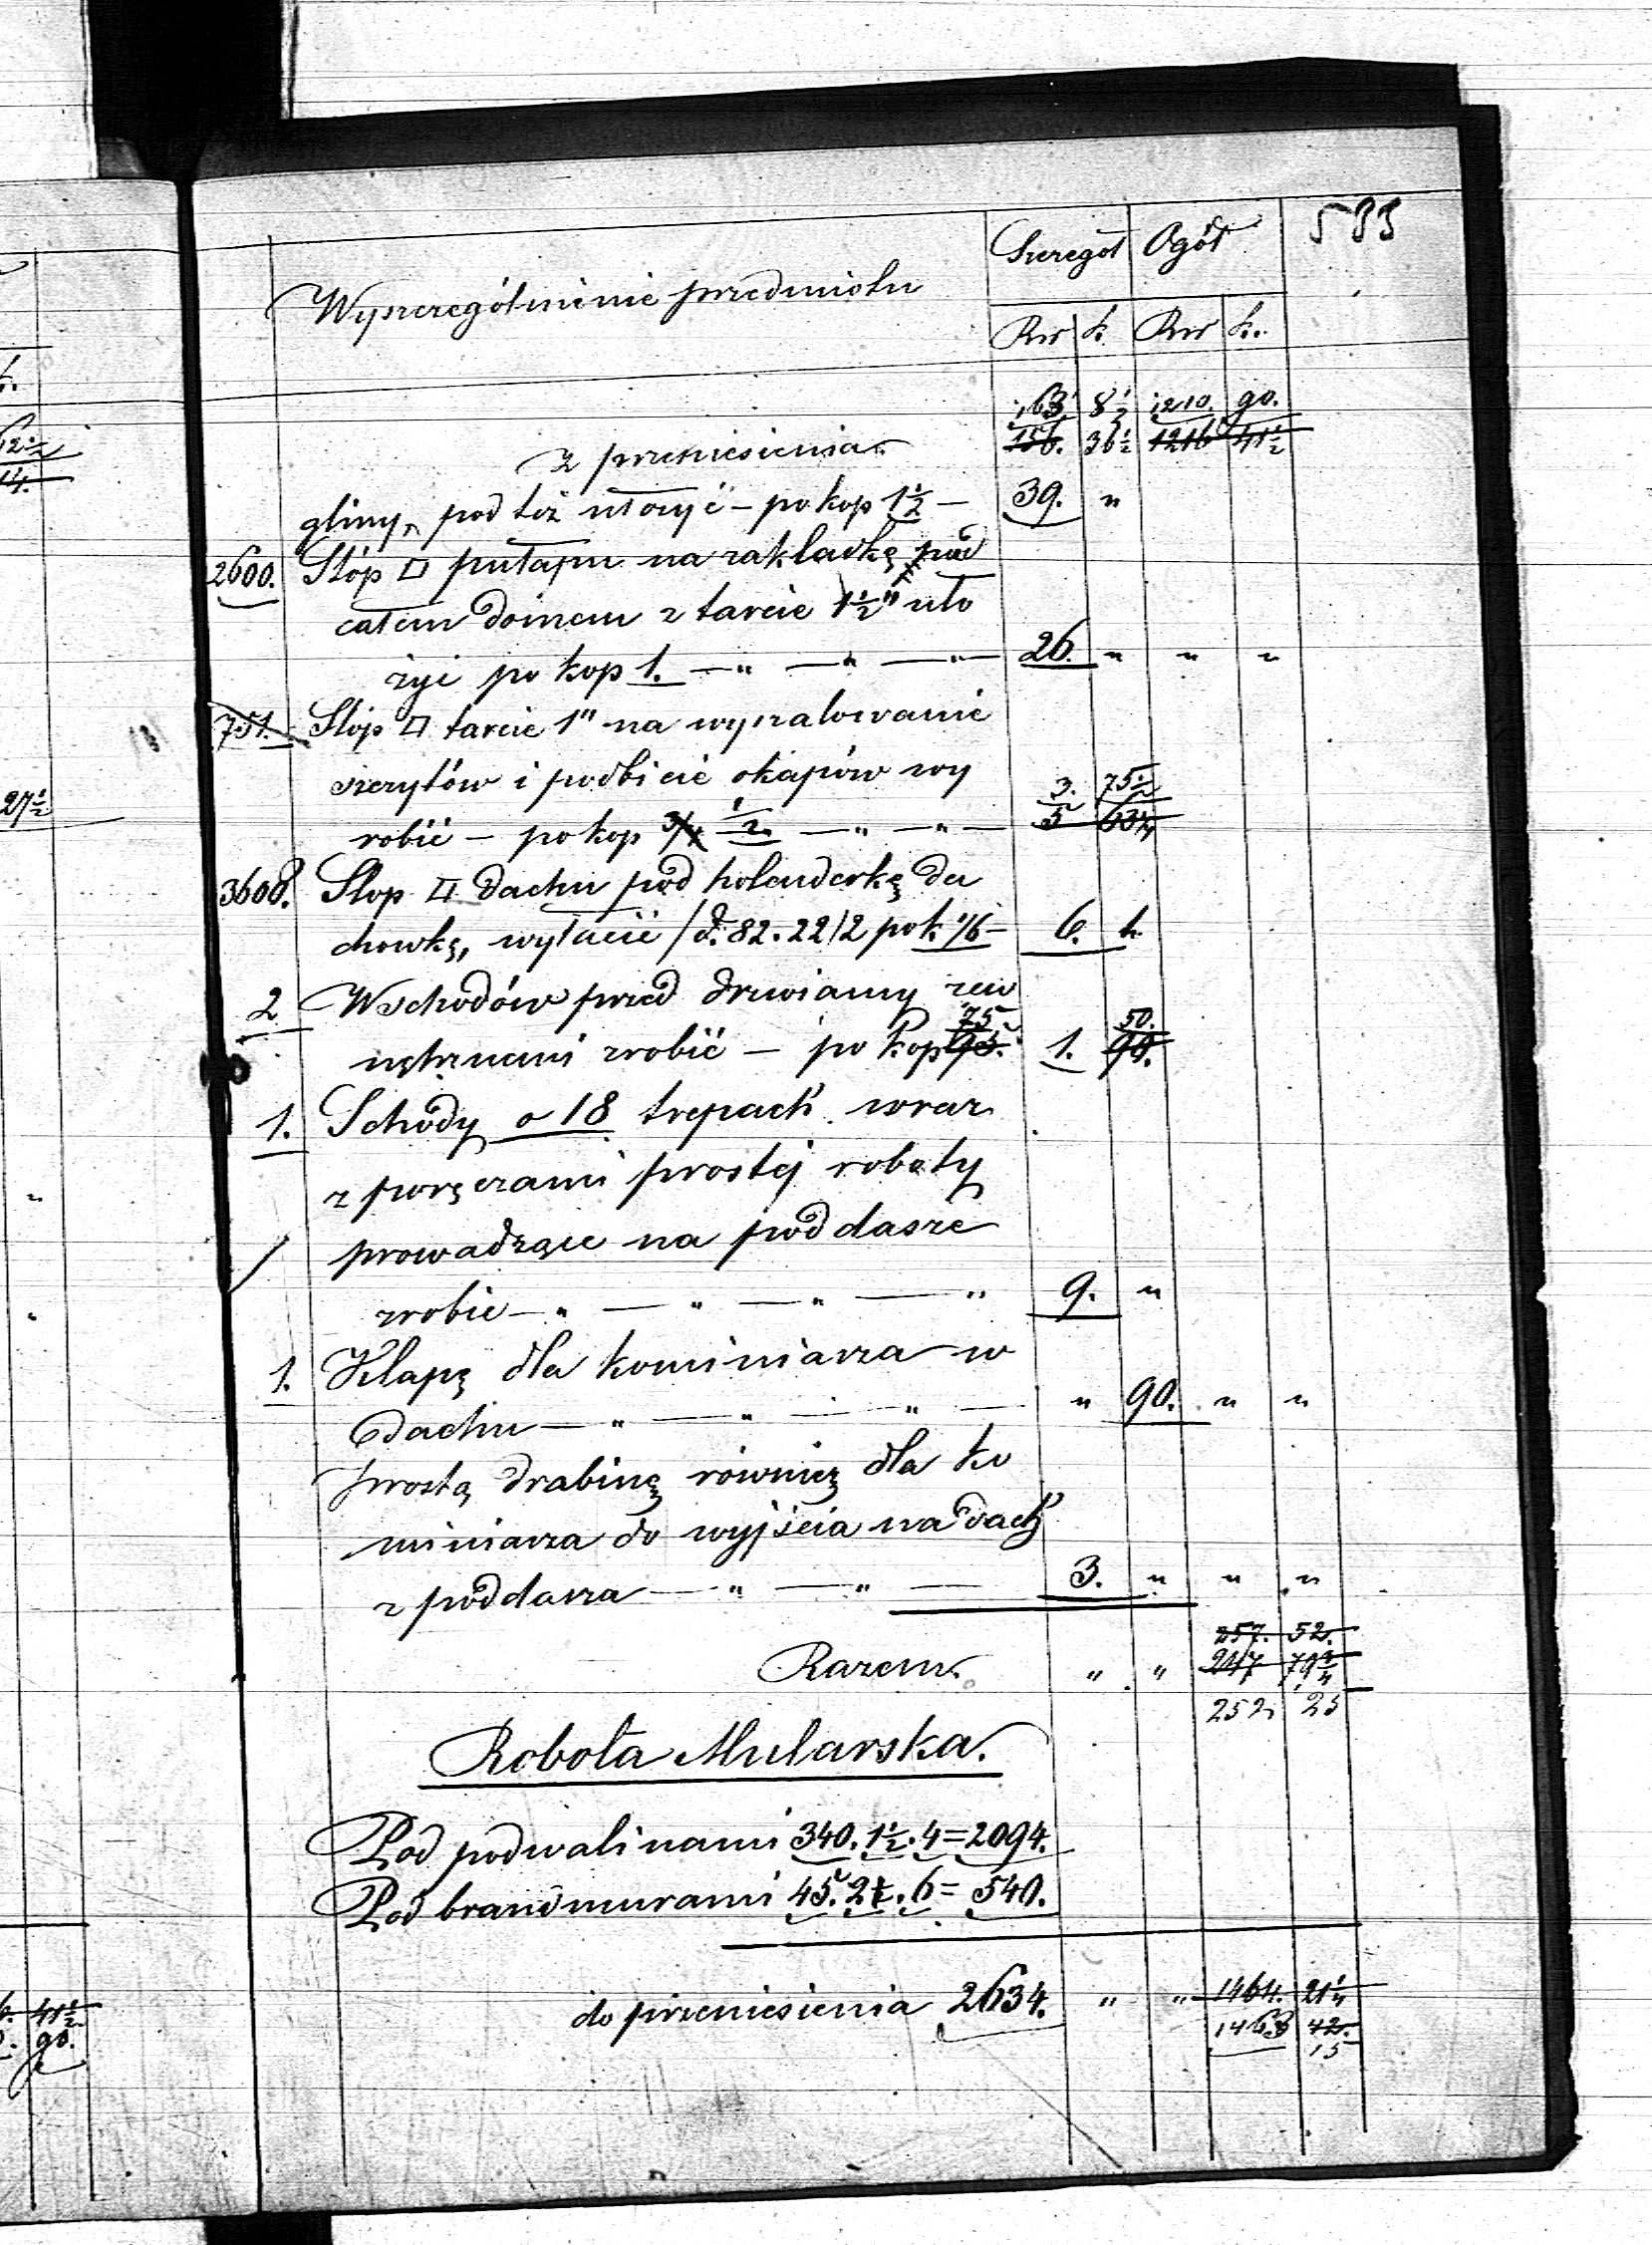 583
Szeregół Ogół
Wyszczególnienie przedmiotu
Rsr k. Rsr k.
163. 8½ 1210. 90.
z przeniesienia 156. 36½ 1216 41½
gliny, pod tóż ułożyć – po kop 1½ – 39. "
2600. Stóp □ pułapu na zakładkę nad
całem domem z tarcic 1½" uło
żyć po kop 1. — " — " — " — 26. " " "
751. Stóp □ tarcic 1" na wyszalowanie
szczytów i podbicie okapów wy
3. 75½
robić – po kop ¾ ½ — " — " — 5 63¼
3608. Stop □ dachu pod holenderkę da
chowkę, wyłacić /d. 82. 22/2 po k. 1/6 – 6. k
2 Wschodów przed drzwiamy zew
75 50.
nętrznemi zrobić – po kop 95. 1. 90.
1. Schody o 18 trepach wraz
z poręczami prostej roboty
prowadzące na poddasze
zrobić — " — " — " — " 9. "
1. Klapę dla kominiarza w
dachu — " — " — " — " 90. " "
prostą drabinę również dla ko
miniarza do wyjścia na dach
z poddasza — " — " — 3. " " "
257. 52.
Razem. " " 247 79¾
252 25
Robota Mularska.
Pod podwalinami 340. 1½. 4 = 2094.
Pod brandmurami 45. 2. 6 = 540.
do przeniesienia 2634. " " 1464. 21¼
1463 42.
15